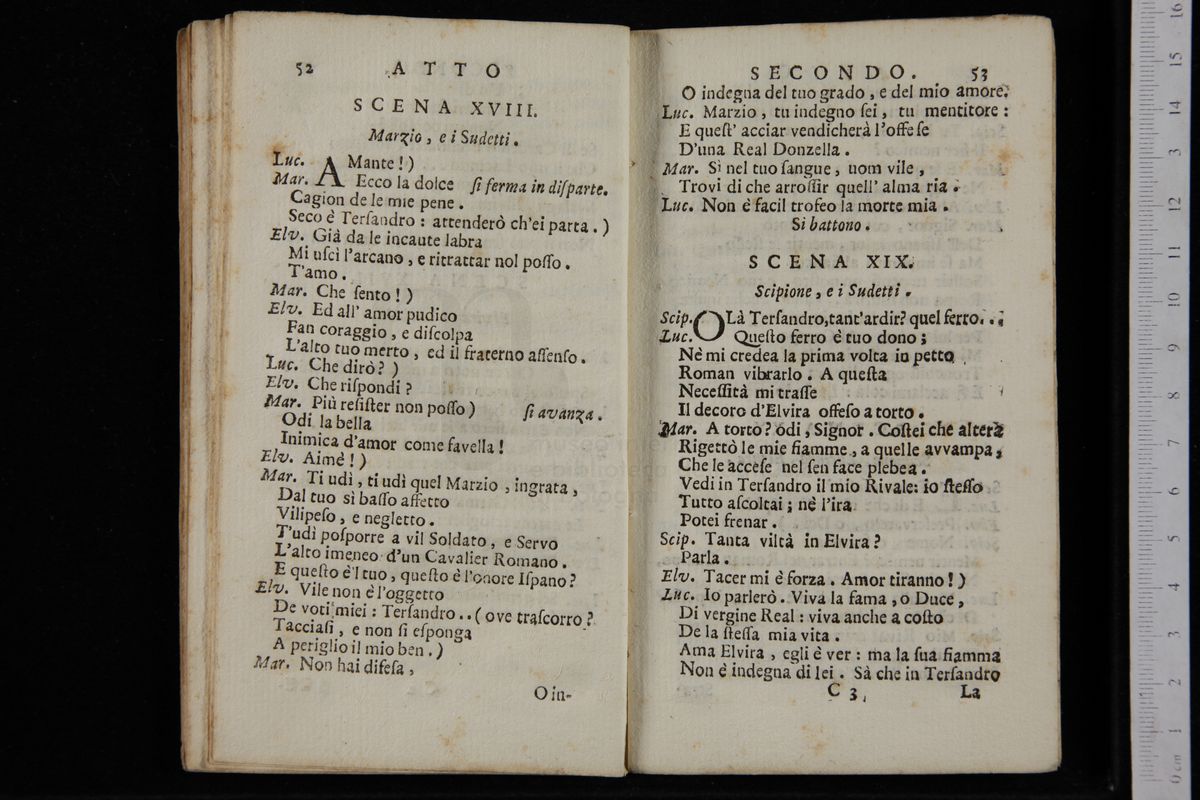 52 ATTO
SCENA XVIII.
Marzio, e i Sudetti.
Luc. AMante!)
Mar. Ecco la dolce ſi ferma in diſparte.
Cagion de le mie pene.
Seco è Terſandro: attenderò ch'ei parta.)
Elv. Già da le incaute labra
Mi uſcì l'arcano, e ritrattar nol poſſo.
T'amo.
Mar. Che ſento!)
Elv. Ed all' amor pudico
Fan coraggio, e diſcolpa
L'alto tuo merto, ed il fraterno aſſenſo.
Luc. Che dirò?)
Elv. Che riſpondi?
Mar. Più reſiſter non poſſo) ſi avanza.
Odi la bella
Inimica d'amor come favella!
Elv. Aimè!)
Mar. Ti udì, ti udì quel Marzio, ingrata,
Dal tuo sì baſſo affetto
Vilipeſo, e negletto.
T'udì poſporre a vil Soldato, e Servo
L'alto imeneo d'un Cavalier Romano.
E queſto è'l tuo, queſto è l'onore Iſpano?
Elv. Vile non è l'oggetto
De voti miei: Terſandro..(ove traſcorro?
Tacciaſi, e non ſi eſponga
A periglio il mio ben.)
Mar. Non hai difeſa,
O in-
SECONDO. 53
O indegna del tuo grado, e del mio amore.
Luc. Marzio, tu indegno ſei, tu mentitore:
E queſt' acciar vendicherà l'offeſe
D'una Real Donzella.
Mar. Sì nel tuo ſangue, uom vile,
Trovi di che arroſſir quell' alma ria.
Luc. Non è facil trofeo la morte mia.
Si battono.
SCENA XIX.
Scipione, e i Sudetti.
Scip. OLà Terſandro, tant'ardir? quel ferro...
Luc. Queſto ferro è tuo dono;
Nè mi credea la prima volta in petto
Roman vibrarlo. A queſta
Neceſſità mi traſſe
Il decoro d'Elvira offeſo a torto.
Mar. A torto? odi, Signor. Coſtei che altera
Rigettò le mie fiamme, a quelle avvampa,
Che le acceſe nel ſen face plebea.
Vedi in Terſandro il mio Rivale: io ſteſſo
Tutto aſcoltai; nè l'ira
Potei frenar.
Scip. Tanta viltà in Elvira?
Parla.
Elv. Tacer mi è forza. Amor tiranno!)
Luc. Io parlerò. Viva la fama, o Duce,
Di vergine Real: viva anche a coſto
De la ſteſſa mia vita.
Ama Elvira, egli è ver: ma la ſua fiamma
Non è indegna di lei. Sà che in Terſandro
C 3, La